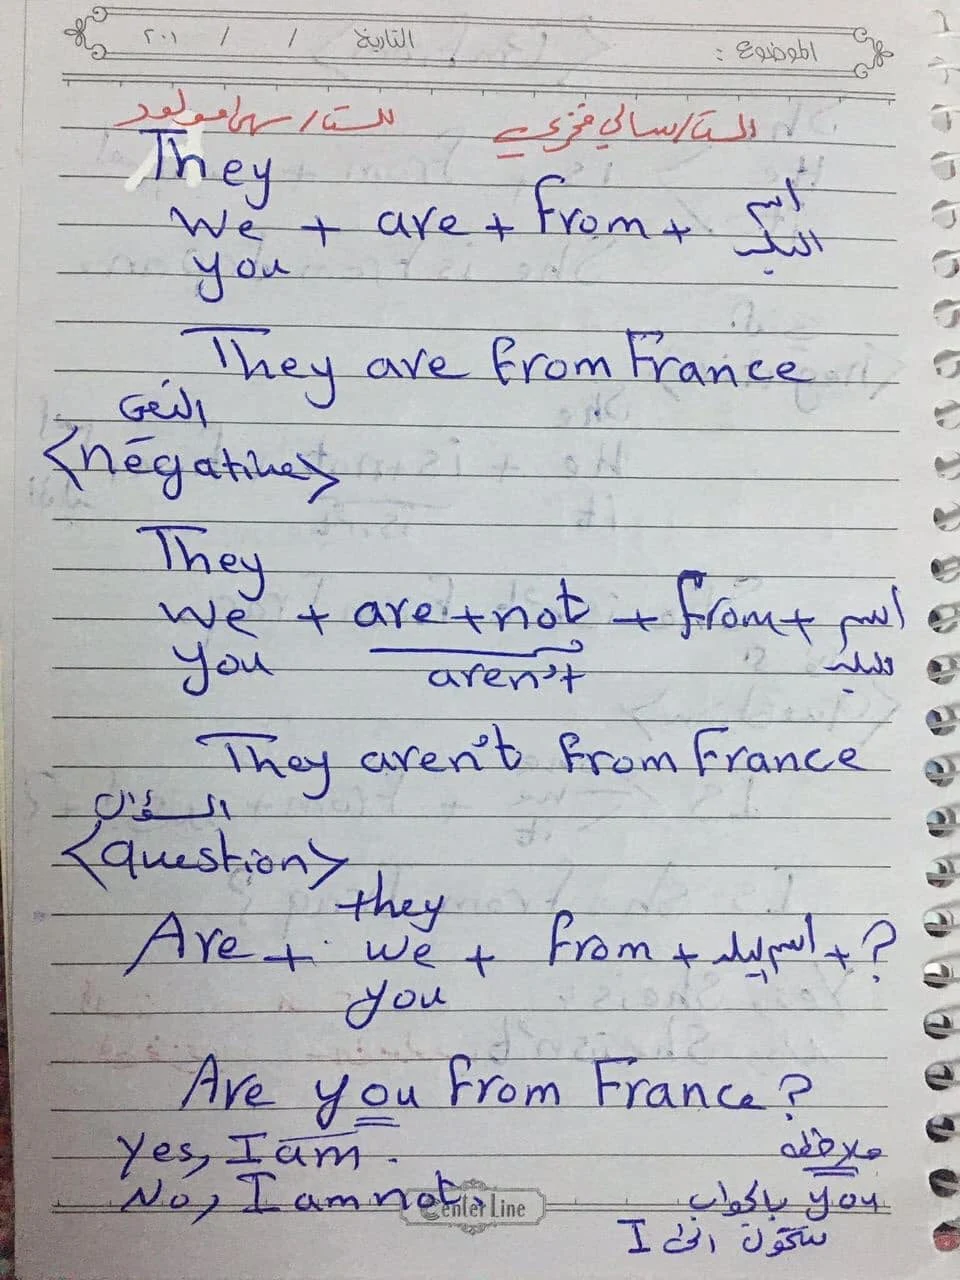 الموضوع : التاريخ / / ٢٠١
الست/سالي فخري للست/سهى مولود
They
We + are + from + اسم البلد
you
They are from France
النفي
<négative>
They
We + are + not + from + اسم البلد
you aren't
They aren't from France
السؤال
<question>
they
Are + we + from + اسم بلد + ?
you
Are you from France?
Yes, I am. ملاحظه
No, I am not. you بالجواب
Center Line
ستكون الى I